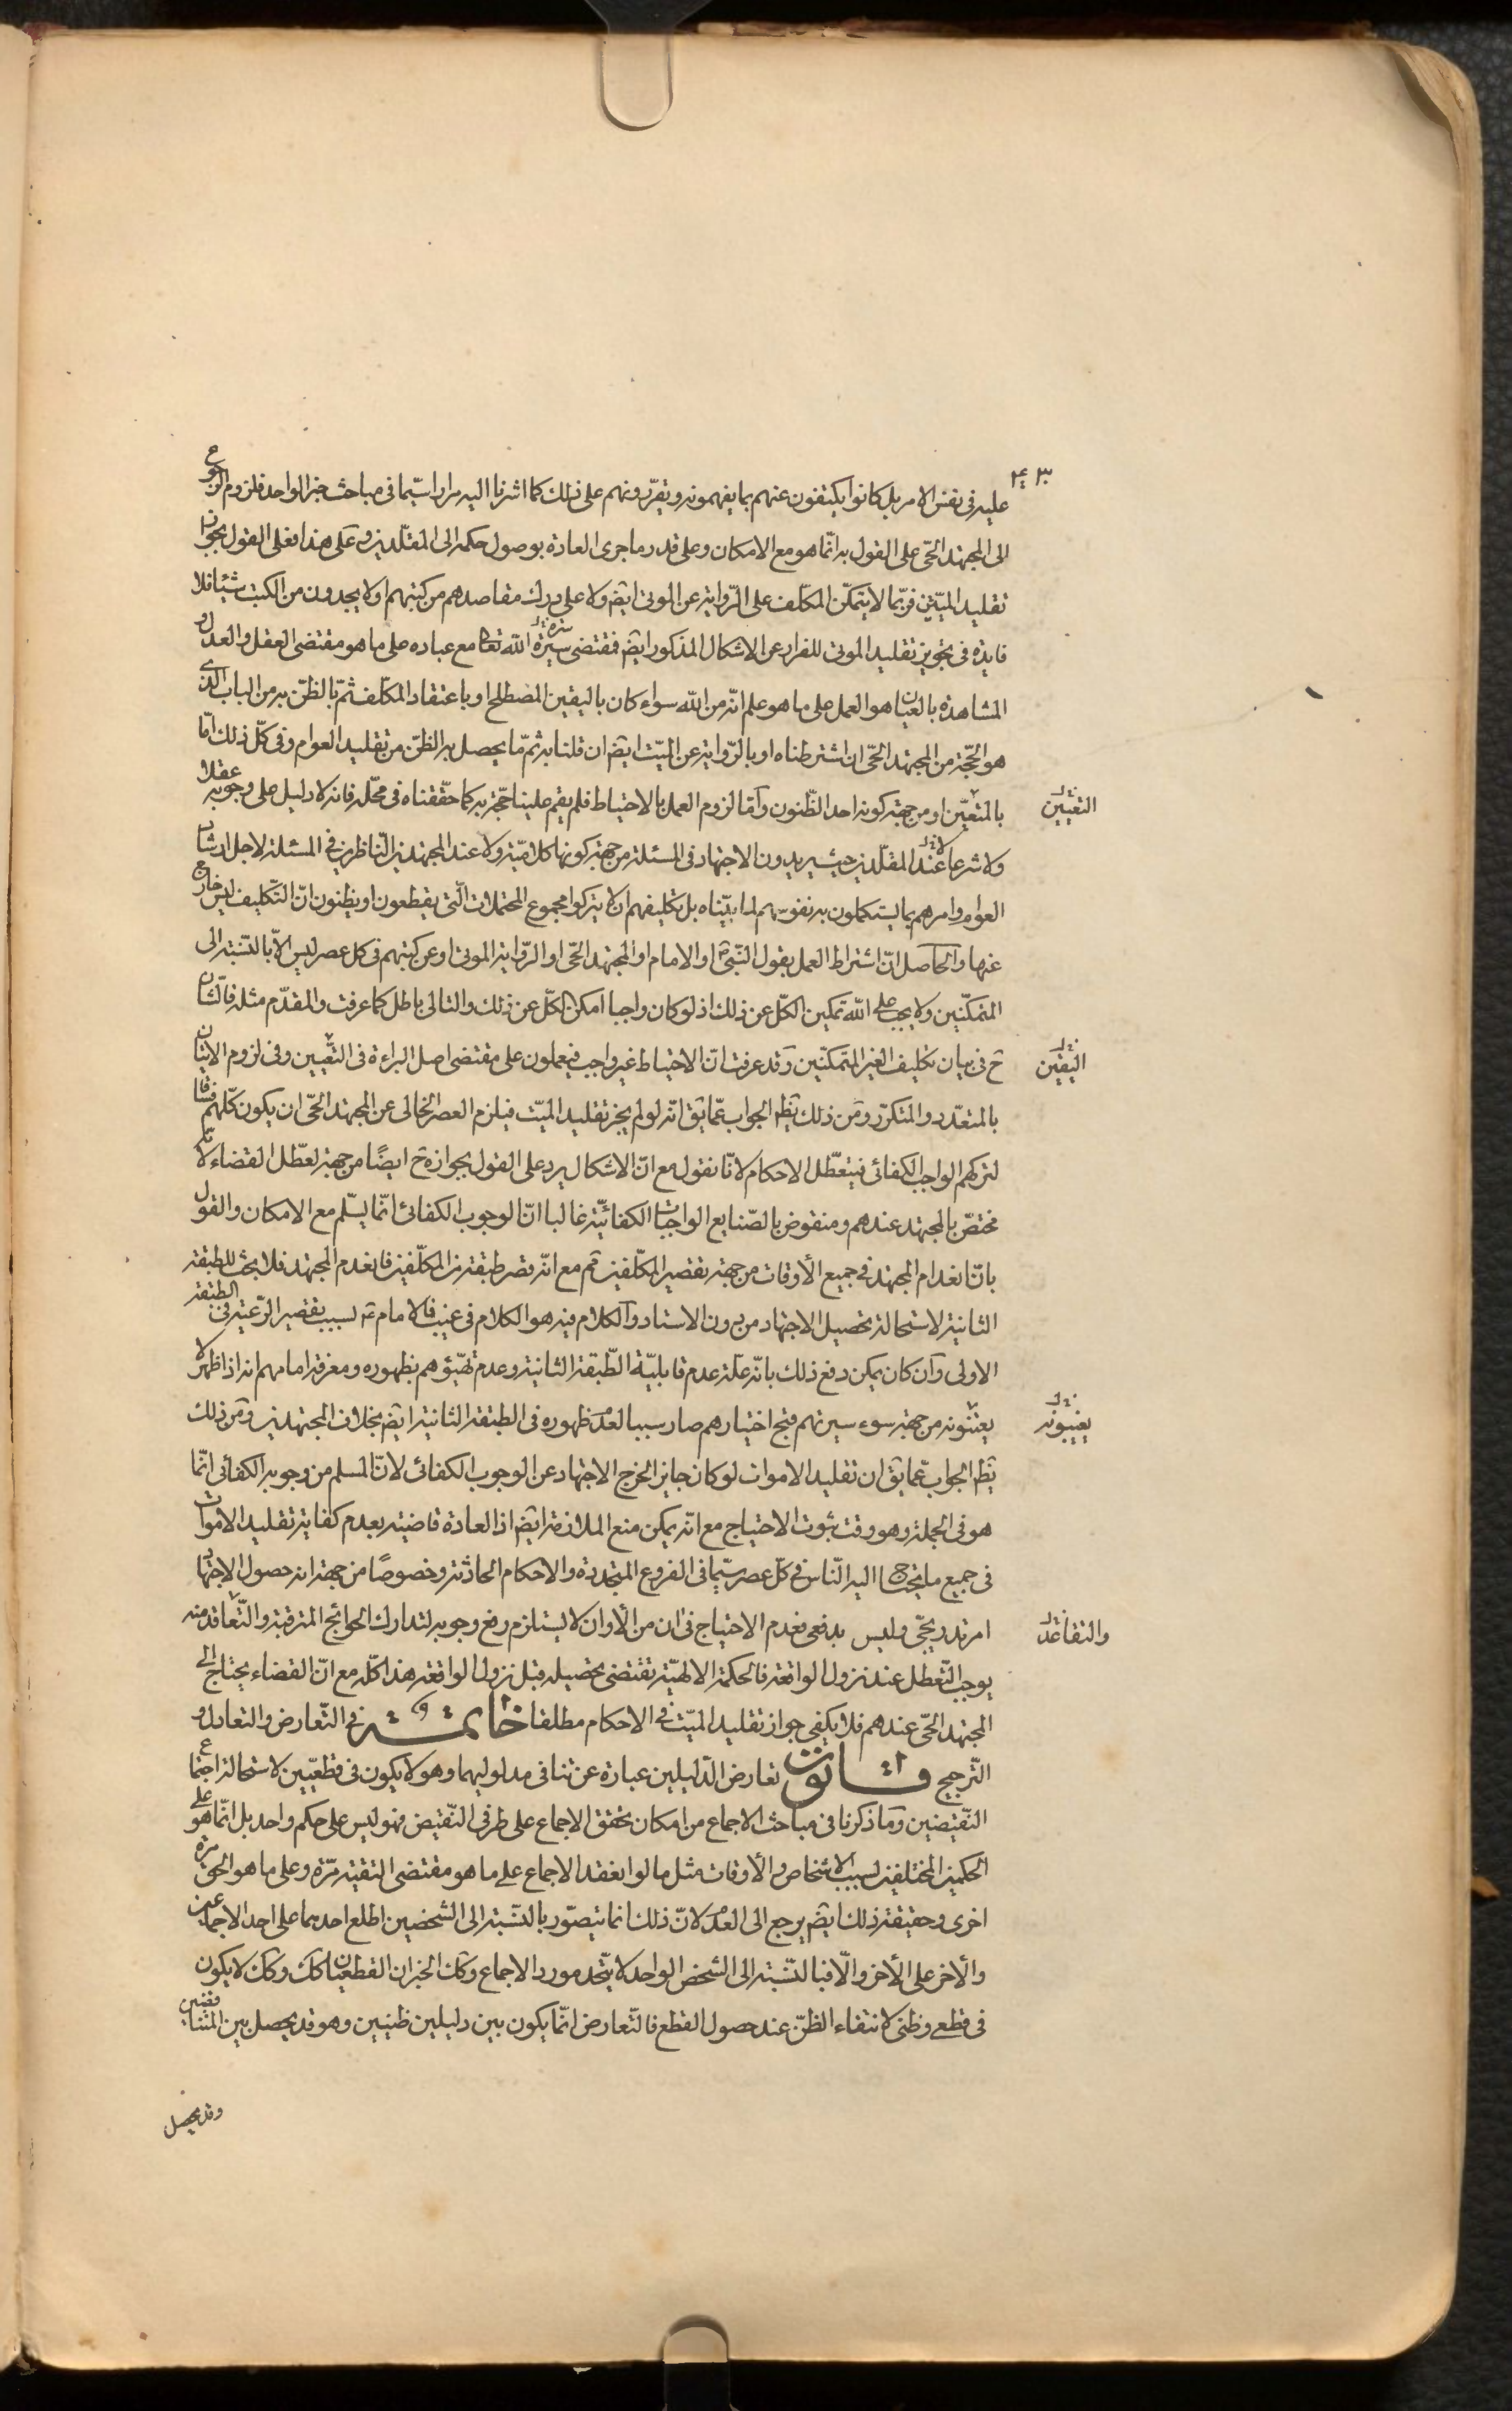 ٤٠٣
عليه فى نفس الامر بل كانوا يكتفون عنهم بما يفهمونه ويقرّرونهم على ذلك كما اشرنا اليه مرارا سيّما فى مباحث خبر الواحد فلزوم الرجوع
الى المجتهد الحّى على القول به انّما هو مع الامكان وعلى قدر ما جرى العادة بوصول حكمه الى المقلّدين وعلى هذا فعلى القول بجواز
تقليد الميّتين فربّما لا يتمكّن المكلّف على الرّواية عن الموتى ايضم ولا على درك مقاصدهم من كتبهم او لا يجدون من الكتب شيئا فلا
فايدة فى تجويز تقليد الموتى للفرار عن الاشكال المذكور ايضم فمقتضى سيرة الله تعالى مع عباده على ما هو مقتضى العقل والعدل و
المشاهدة بالعيان هو العمل على ما هو علم انّه من الله سواء كان باليقين المصطلح او باعتقاد المكلّف ثمّ بالظنّ به من الباب الذى
هو الحّجة من المجتهد الحّى ان اشترطناه او بالرّواية عن الميّت ايضم ان قلنا به ثمّ ما يحصل به الظنّ من تقليد العوام وفى كلّ ذلك امّا
بالمتعيّن او من جهة كونه احد الظّنون وامّا لزوم العمل بالاحتياط فلم يقم علينا حجّة به كما حقّقناه فى محلّه فانه لا دليل على وجوبه عقلا
التعيين
ولا شرعا عند المقلّدين حيث يريدون الاجتهاد فى المسئلة من جهة كونها كلاميّة ولا عند المجتهدين النّاظرين فى المسئلة لاجل ارشاد
العوام وامرهم بما يستكملون به نفوسهم لما بيّناه بل تكليفهم ان لا يتركوا مجموع المحتملات الّتى يقطعون او يظنون انّ التّكليف ليس خارج
عنها والحاصل انّ اشتراط العمل بقول النّبىّ او الامام او المجتهد الحّى او الرّواية الموتى او عن كتبهم فى كل عصر ليس الاّ بالنّسبة الى
المتمكّنين ولا يجب على الله تمكين الكلّ عن ذلك اذ لو كان واجبا امكن الكلّ عن ذلك والتالى باطل كما عرفت والمقدّم مثله فالشان
ح فى بيان تكليف الغير المتمكّنين وقد عرفت انّ الاحتياط غير واجب فيعملون على مقتضى اصل البراءة فى التعيين وفى لزوم الاتيان
اليقين
بالمتعدّد والمتكرّر ومن ذلك يظهر الجواب عمّا يق انّه لو لم يجز تقليد الميّت فيلزم العصر الخالى عن المجتهد الحّى ان يكون كلّهم فساقا
لتركهم الواجب الكفائى فيتعطّل الاحكام لانّا نقول مع انّ الاشكال يرد على القول بجوازه ح ايضًا من جهة تعطّل القضاء لانه
مختصّ بالمجتهد عندهم ومنقوض بالصّنايع الواجبات الكفائيّة غالبا انّ الوجوب الكفائى انّما يسلّم مع الامكان والقول
بانّ انعدام المجتهد فى جميع الأوقات من جهة تقصير المكلّفين تم مع انّه قصر طبقة من المكلّفين فانعدم المجتهد فلا بحث للطبقة
الثانية لاستحالة تحصيل الاجتهاد من بدون الاستاد والكلام فيه هو الكلام فى غيبة الامام ع بسبب تقصير الرّعية فى الطبقة
الاولى وان كان يمكن دفع ذلك بانّه علّة عدم قابليّة الطّبقة الثانية وعدم تهيّؤهم بظهوره ومعرفة امامهم انه اذا ظهر لا
يعينونه من جهة سوء سيرتهم فبج اختيارهم صار سببا لعدم ظهوره فى الطبقة الثانية ايضم بخلاف المجتهدين ومن ذلك
يغيبونه
يظهر الجواب عمّا يق ان تقليد الاموات لو كان جايز الخرج الاجتهاد عن الوجوب الكفائى لانّ المسلم من وجوبه الكفائى انّما
هو فى الجملة وهو وقت ثبوت الاحتياج مع انّه يمكن منع الملازمة ايضم اذ العادة قاضية بعدم كفاية تقليد الاموات
فى جميع ما يحتاج اليه النّاس فى كلّ عصر سيّما فى الفروع المتجددة والاحكام الحادثة وخصوصًا من جهة انه حصول الاجتهاد
امر تدريجّى وليس بدفعى فعدم الاحتياج فى ان من الأوان لا يستلزم رفع وجوبه لتدارك الحوائج المترقبة والتّعاقد منه
والتقاعد
يوجب التّعطل عند نزول الواقعة فالحكمة الالهيّة تقتضى تحصيله قبل نزول الواقعة هذا كلّه مع انّ القضاء يحتاج الى
المجتهد الحّى عندهم فلا يكفى جواز تقليد الميّت فى الاحكام مطلقا خاتمة فى التّعارض والتعادل و
التّرجيح قانون تعارض الدّليلين عبارة عن تنافى مدلوليهما وهو لا يكون فى قطعيّين لاستحالة اجتماع
النّقيضين وما ذكرنا فى مباحث الاجماع من امكان تحقق الاجماع على طرفى النّقيض فهو ليس على حكم واحد بل انّما هو على
الحكمين المختلفين بسبب الاشخاص والأوقات مثل ما لو انعقد الاجماع على ما هو مقتضى التقيّة مرّة وعلى ما هو الحق مرة
اخرى وحقيقة ذلك ايضم يرجع الى العدم لانّ ذلك انما يتصّور بالنّسبة الى الشخصين اطلع احدهما على احد الاجماعين
والأخر على الأخر والّا فبالنّسبة الى الشخص الواحد لا يتّحد مورد الاجماع وكك الخبران القطعيّان كك وكك لا يكون
فى قطعى وظنى لانتفاء الظنّ عند حصول القطع فالتّعارض انّما يكون بين دليلين ظنيين وهو قد يحصل بين المتناقضين
وقد يحصل